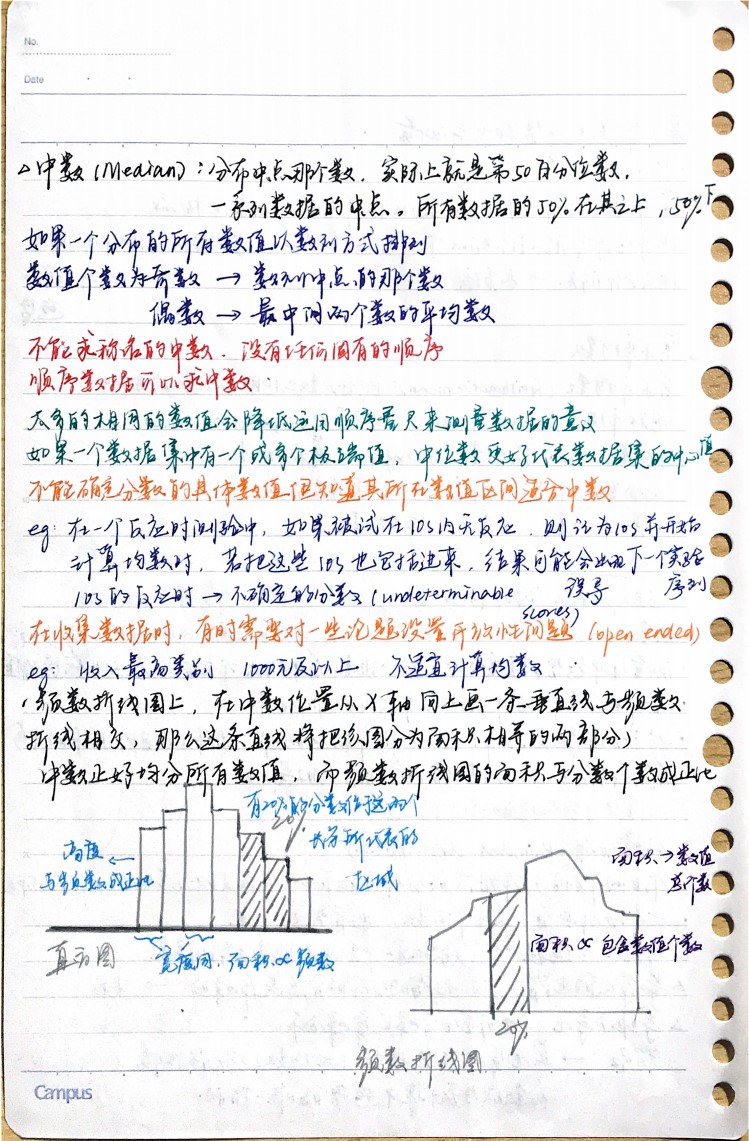 No.
Date
△中数(Median)：分布中点那个数．实际上就是第50百分位数．
一系列数据的中点。所有数据的50%在其之上，50%下
如果一个分布的所有数值以数列方式排列
数值个数为奇数 → 数列中点的那个数
偶数 → 最中间两个数的平均数
不能求称名的中数．没有任何固有的顺序
顺序数据可以求中数
太多的相同的数值会降低运用顺序量尺来测量数据的意义
如果一个数据集中有一个或多个极端值，中位数更好代表数据集的中心值
不能确定分数的具体数值但知道其所在数值区间适合中数
eg: 在一个反应时测验中，如果被试在10s内无反应．则记为10s并开始
计算均数时，若把这些10s也包括进来，结果可能会出现误导 下一个实验序列
10s的反应时 → 不确定的分数(undeterminable scores)
在收集数据时，有时需要对一些论题设置开放性问题(open ended)
eg: 收入最高类别 1000元及以上 不适宜计算均数
·频数折线图上，在中数位置从X轴向上画一条垂直线与频数
折线相交，那么这条直线将把该图分为面积相等的两部分)
中数正好均分所有数值，而频数折线图的面积与分数个数成正比
有20%的分数位于这两个
长方所代表的
区域
20%
高度 ←
与频数成正比
直方图
宽度同．面积∝频数
面积 → 数值
总个数
面积∝包含数值个数
20%
频数折线图
Campus